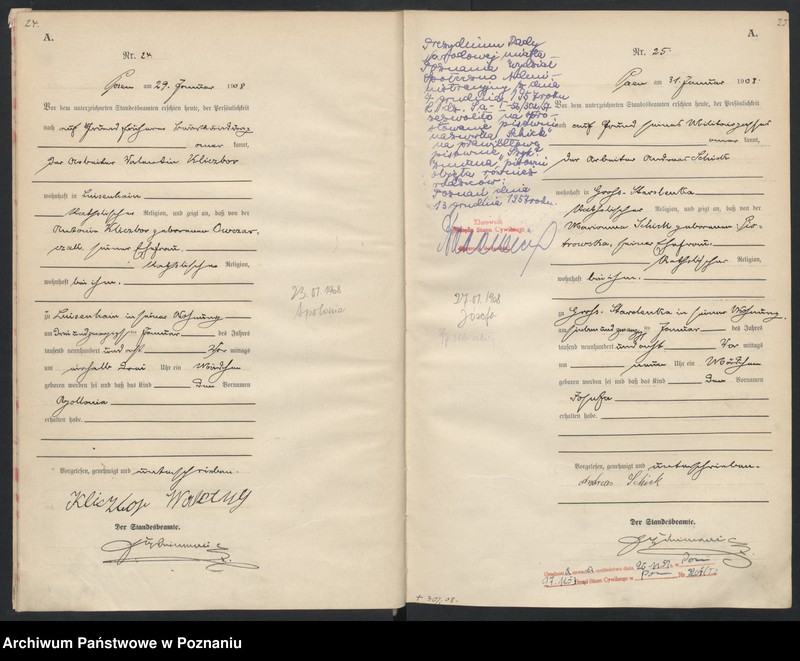 24.
A.
Nr. 24
Posen am 29. Januar 1908
Vor dem unterzeichneten Standesbeamten erschien heute, der Persönlichkeit
nach auf Grund
kannt,
der Arbeiter Valentin Kliczbor
wohnhaft in Luisenhain
katholischer Religion, und zeigt an, daß von der
Antonia Kliczbor geborenen
seiner Ehefrau
katholischer Religion,
wohnhaft bei ihm.
zu Luisenhain in seiner Wohnung
am drei und zwanzigsten Januar des Jahres
tausend neunhundert und acht Vor mittags
um einhalb drei Uhr ein Mädchen
geboren worden sei und daß das Kind den Vornamen
Apollonia
erhalten habe.
Vorgelesen, genehmigt und unterschrieben.
Der Standesbeamte.
23.01.1908
Apolonia
A.
Nr. 25.
Posen am 31. Januar 1908.
Vor dem unterzeichneten Standesbeamten erschien heute, der Persönlichkeit
nach auf Grund seines Militärpasses
kannt,
der Arbeiter Andreas Schick
wohnhaft in Gross-Starolenka
katholischer Religion, und zeigt an, daß von der
Marianna Schick geborenen Pio-
trowska, seiner Ehefrau.
katholischer Religion,
wohnhaft bei ihm.
zu Gross-Starolenka in seiner Wohnung,
am sieben und zwanzigsten Januar des Jahres
tausend neunhundert und acht Vor mittags
um neun Uhr ein Mädchen
geboren worden sei und daß das Kind den Vornamen
Josefa
erhalten habe.
Vorgelesen, genehmigt und unterschrieben.
Andreas Schick
Der Standesbeamte.
Prezydium Rady
Narodowej miasta
Poznania Wydział
Społeczno Admini-
stracyjny z dnia
7 grudnia 1957 roku
zezwoliło na spro-
stowanie pisowni
nazwiska "Schick"
na prawidłową
pisownię "Szyk".
Zmiana pisowni
objęła również
rodziców.
Poznań dnia
13 grudnia 1957 roku.
Kierownik
Urzędu Stanu Cywilnego
27.01.1908
Józefa
Archiwum Państwowe w Poznaniu